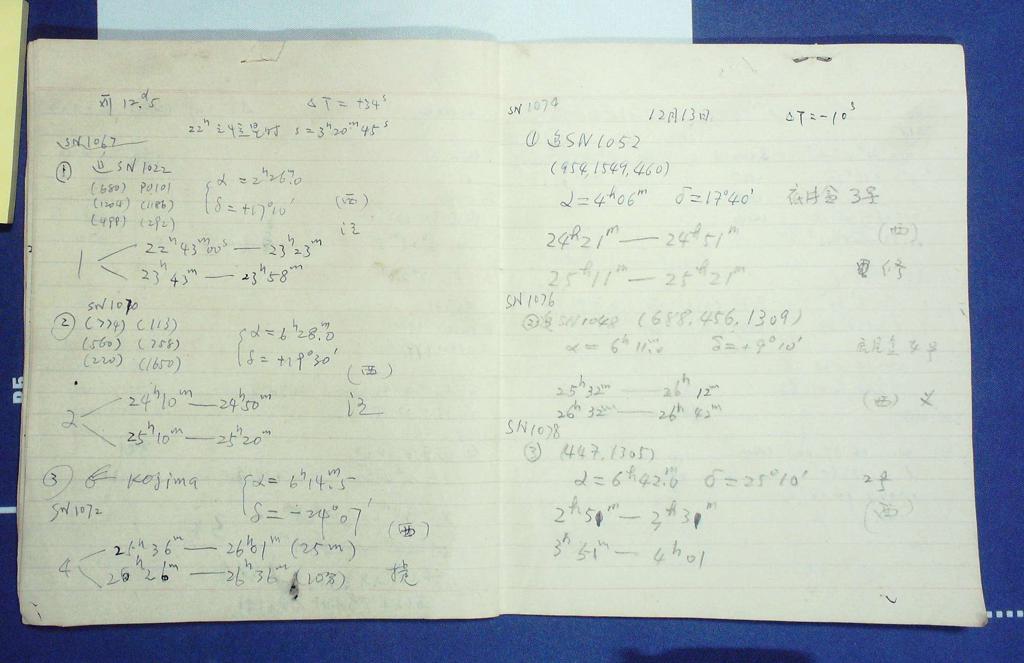 12.ᵈ5 ΔT = +34ˢ
S = 3ʰ20ᵐ45ˢ
SN1067
① 追SN1022
(680) P0101
(1204) (1186)
(499) (292)
α = 2ʰ26ᵐ.0
δ = +17°10′
(西)
1 22ʰ43ᵐ00ˢ — 23ʰ23ᵐ
23ʰ43ᵐ — 23ʰ58ᵐ
SN1070
② (774) (113)
(560) (758)
(220) (1650)
α = 6ʰ28ᵐ.0
δ = +19°30′
(西)
2 24ʰ10ᵐ — 24ʰ50ᵐ
25ʰ10ᵐ — 25ʰ20ᵐ
③ Kojima α = 6ʰ14ᵐ.5
SN1072 δ = -24°07′
(西)
4 25ʰ36ᵐ — 26ʰ01ᵐ (25m)
26ʰ26ᵐ — 26ʰ36ᵐ (10分)
SN1074 12月13日 ΔT = -10ˢ
① 追SN1052
(954,1549,460)
α = 4ʰ06ᵐ δ = 17°40′ 底片盒 3号
24ʰ21ᵐ — 24ʰ51ᵐ (西)
25ʰ11ᵐ — 25ʰ21ᵐ 修
SN1076
② 追SN1048 (688,456,1309)
α = 6ʰ11ᵐ.0 δ = +9°10′ 底片盒 4号
25ʰ32ᵐ — 26ʰ12ᵐ
26ʰ32ᵐ — 26ʰ42ᵐ (西)
SN1078
③ (447,1305)
α = 6ʰ42ᵐ.0 δ = 25°10′ 2号
2ʰ51ᵐ — 3ʰ31ᵐ (西)
3ʰ51ᵐ — 4ʰ01